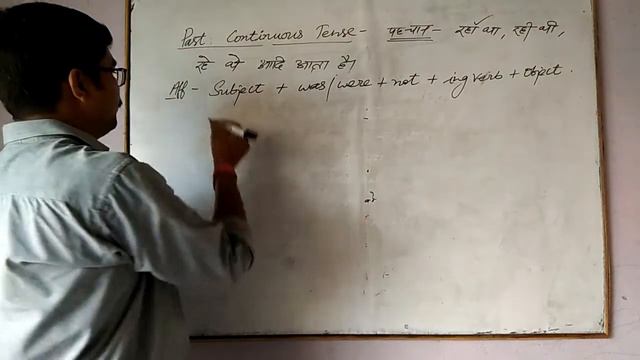 Past Continuous Tense - पहचान - रहा था, रही थी,
रहे थे आदि आता है।
Aff - Subject + was/were + not + ing verb + Object.